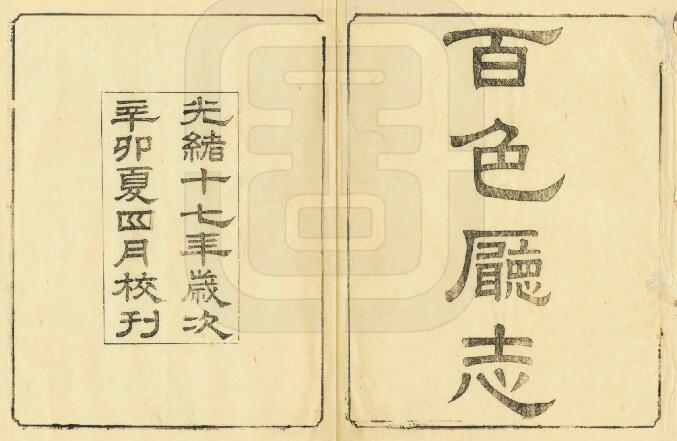 百色廳志
光緒十七年歲次
辛卯夏四月校刊